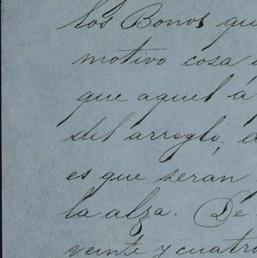 los Bonos qu
motivo cosa
que aquel á
del arreglo,
es que seran
la alza. De
veinte y cuatro